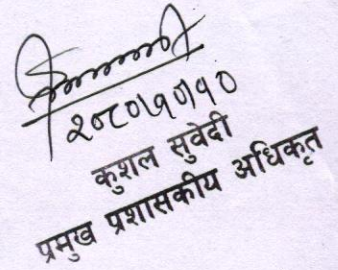 २०८०।१०।१०
कुशल सुवेदी
प्रमुख प्रशासकीय अधिकृत